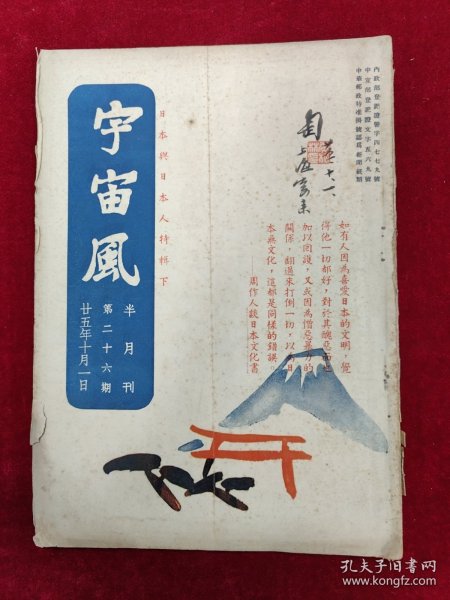 內政部登記證警字四七七九號
中宣部登記證文字五六九號
中華郵政特准掛號認爲新聞紙類
宇宙風
半月刊
第二十六期
廿五年十月一日
日本與日本人特輯下
如有人因爲喜愛日本的文明，覺
得他一切都好，對於其醜惡面也
加以回護，又或因爲憎惡暴力的
關係，翻過來打倒一切，以爲日
本無文化，這都是同樣的錯誤。
——周作人談日本文化書
孔夫子旧书网
www.kongfz.com